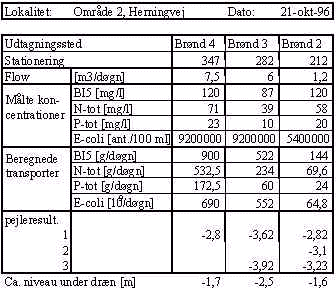 Lokalitet: Område 2, Herningvej Dato: 21-okt-96
Udtagningssted Brønd 4 Brønd 3 Brønd 2
Stationering 347 282 212
Flow [m3/døgn] 7,5 6 1,2
Målte kon-centrationer
BI5 [mg/l] 120 87 120
N-tot [mg/l] 71 39 58
P-tot [mg/l] 23 10 20
E-coli [ant./100 ml] 9200000 9200000 5400000
Beregnede transporter
BI5 [g/døgn] 900 522 144
N-tot [g/døgn] 532,5 234 69,6
P-tot [g/døgn] 172,5 60 24
E-coli [10⁹/døgn] 690 552 64,8
pejleresult.
1 -2,8 -3,62 -2,82
2 -3,1
3 -3,92 -3,23
Ca. niveau under dræn [m] -1,7 -2,5 -1,6